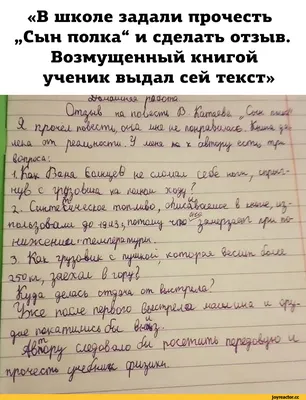 «В школе задали прочесть
„Сын полка“ и сделать отзыв.
Возмущенный книгой
ученик выдал сей текст»
Домашняя работа
Отзыв на повесть В. Катаева „Сын полка“
Я прочел повесть, она мне не понравилась. Книга да-
лека от реальности. У меня на к автору есть три
вопроса:
1. Как Ваня Солнцев не сломал себе ноги, спрыг-
нув с грузовика на полном ходу?
2. Синтетическое топливо, описываемое в книге, из-
пользовали до 1943, потому что оно замерзает при по-
нижении температуры.
3. Как грузовик с пушкой, которая весит более
250 кг, заехал в гору?
Куда делась отдача от выстрела?
Уже после первого выстрела машина и ору-
дие покатились бы вниз.
Автору следовало бы посетить передовую и
прочесть учебник физики.
joyreactor.cc